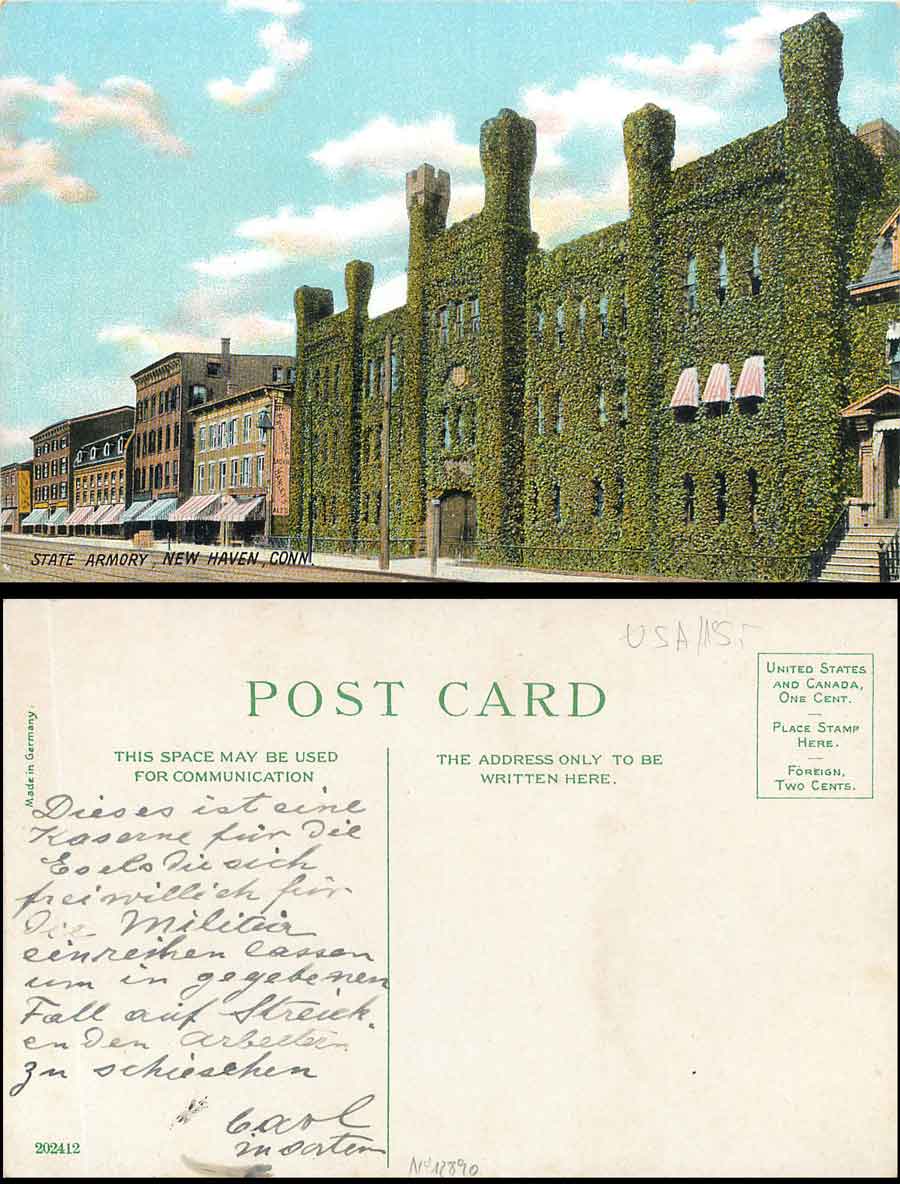 STATE ARMORY, NEW HAVEN, CONN.
USA
POST CARD
UNITED STATES
AND CANADA,
ONE CENT.
PLACE STAMP
HERE.
FOREIGN,
TWO CENTS.
Made in Germany.
THIS SPACE MAY BE USED
FOR COMMUNICATION
THE ADDRESS ONLY TO BE
WRITTEN HERE.
Dieses ist eine
Kaserne für die
Esels die sich
freiwillich für
Die Militär
einreihen lassen
um in gegebenen
Fall auf Streick
enden Arbeitern
zu schieschen
Carl
202412
No 12890